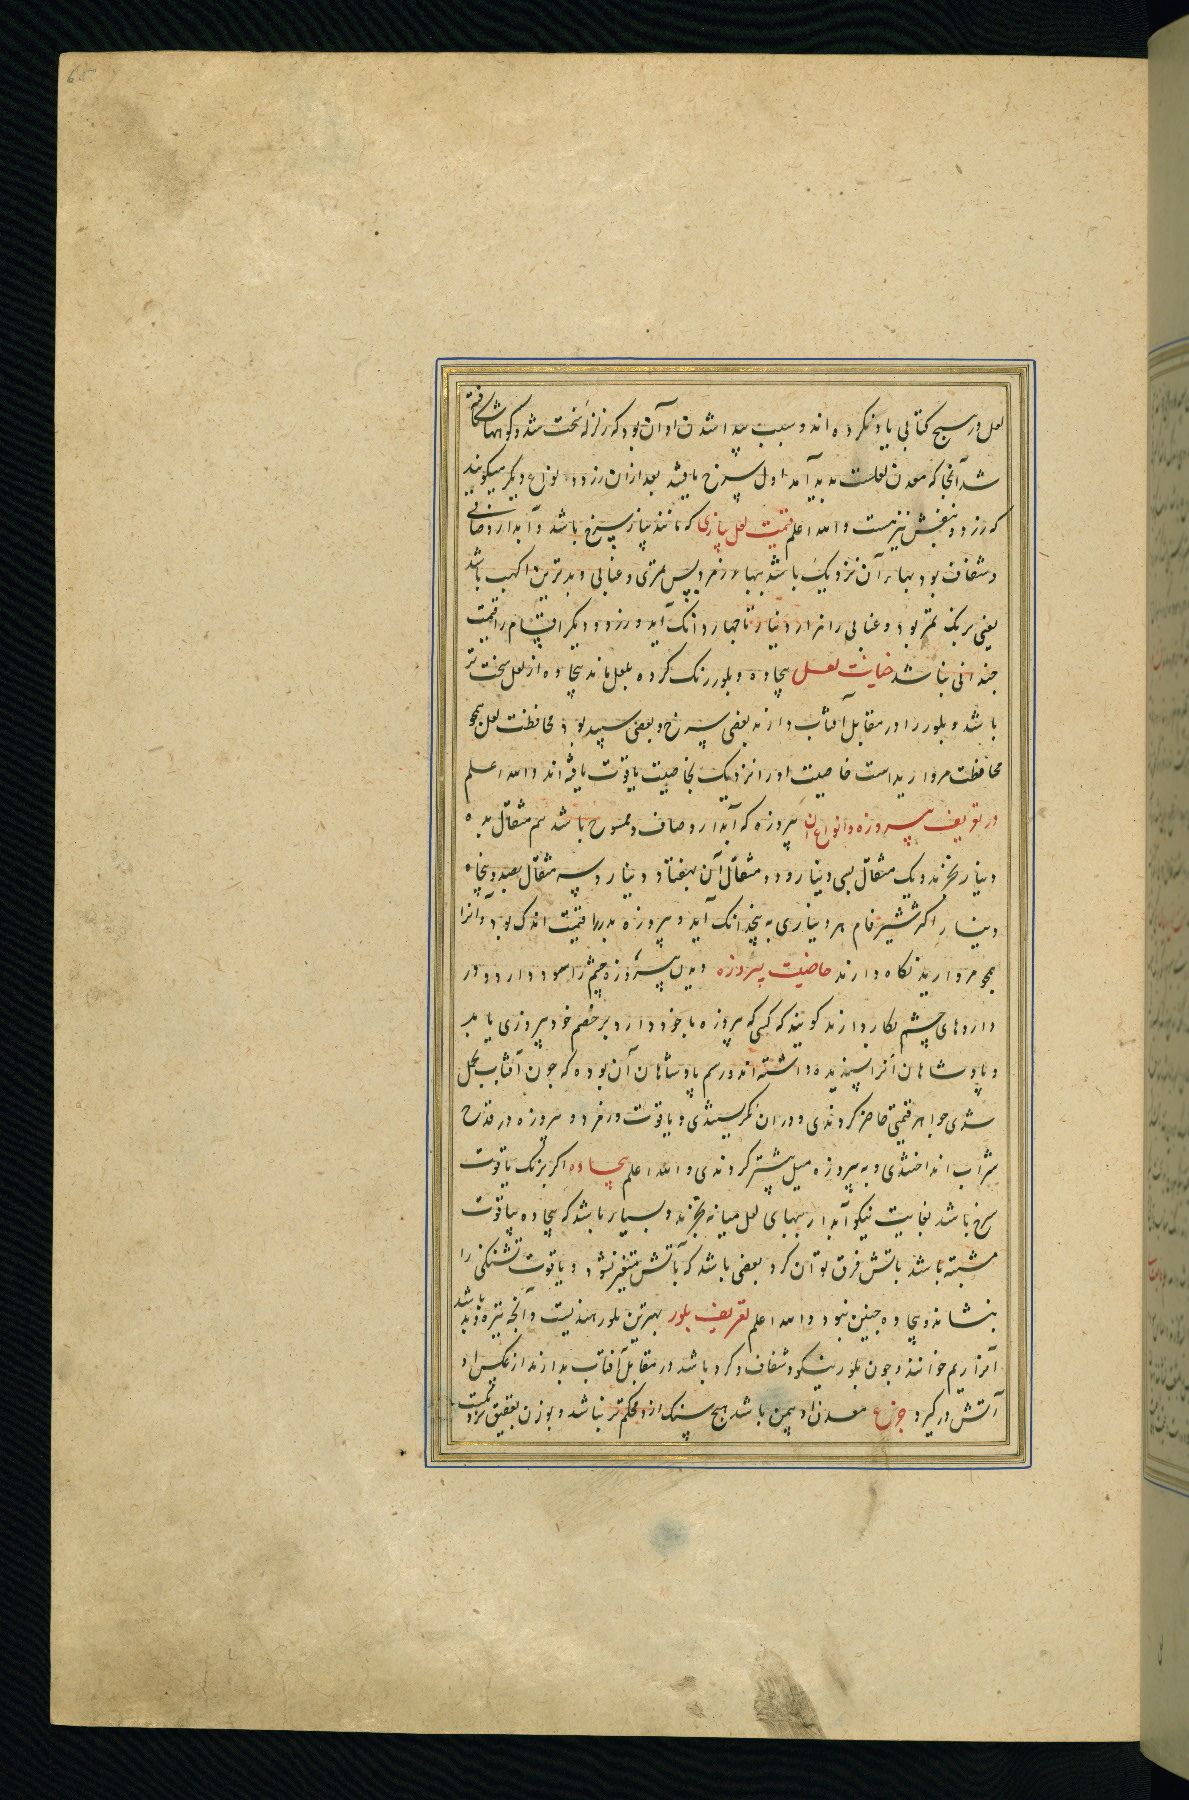 65
لعل در هیچ کتابی یاد نکرده اند و سبب پیدا شدن او آن بود که زلزله سخت شد و کوهها شکافته
شد آنجا که معدن لعلست پدید آمد اول سرخ یافتند بعد از ان زرد و انواع دیگر میکویند
که زرد و بنفش نیز هست و الله اعلم قیمت لعل پیازی که مانند پیاز سرخ باشد و آبدار و صافی
و شفاف بود بهاء آن نزدیک باشد ببهاء زمرد پس تمری و عنابی و بدترین اکهب باشد
یعنی برنک تمر بود و عنابی را از دینار تا چهار دانک آید و زرد و دیکر اقسام را قیمت
چندانی نباشد خیانت لعل بیجاده و بلور رنک کرده بلعل ماند بیجاده از لعل سخت تر
باشد و بلور را در مقابل آفتاب دارند بعضی سرخ و بعضی سپید بود محافظت لعل همچو
محافظت مروارید است خاصیت او را نزدیک بخاصیت یاقوت یافته اند و الله اعلم
در تعریف پیروزه و انواع ان پیروزه که آبدار و صاف و ممسوح باشد نیم مثقال بده
دینار بخرند و یک مثقال بسی دینار و دو مثقال آن بهفتاد دینار و سه مثقال بصد و پنجاه
دینار اکر شیر فام هر دیناری به پنجدانک آید و پیروزه بد را قیمت اندک بود و آنرا
همچو مروارید نکاه دارند خاصیت پیروزه دیدن پیروزه چشم را سود دارد و در
داروهای چشم بکار دارند کویند که کسی که پیروزه با خود دارد بر خصم خود پیروزی یابد
و پادشاهان آنرا پسندیده داشته اند و رسم پادشاهان آن بوده که چون آفتاب بحمل
شدی جواهر قیمتی حاضر کردندی و در ان نکریستندی و یاقوت و زمرد و پیروزه در قدح
شراب انداختندی و به پیروزه میل بیشتر کردندی و الله اعلم بیجاده اکر برنک یاقوت
سرخ باشد بغایت نیکو آبدار ببهای لعل میانه بخرند و بسیار باشد که بیجاده بیاقوت
مشتبه باشد باتش فرق توان کرد بعضی باشد که بآتش متغیر نشود و یاقوت تشنکی را
بنشاند و بیجاده چنین نبود و الله اعلم تعریف بلور بهترین بلور هندیست و آنچه تیره و بد باشد
آنرا ریم خوانند و چون بلور نیکو و شفاف و کرد باشد در مقابل آفتاب بدارند از عکس او
آتش در کیرد جزع معدن او یمن باشد هیچ سنک ازو محکم تر نباشد و بوزن بعقیق نزدیکست